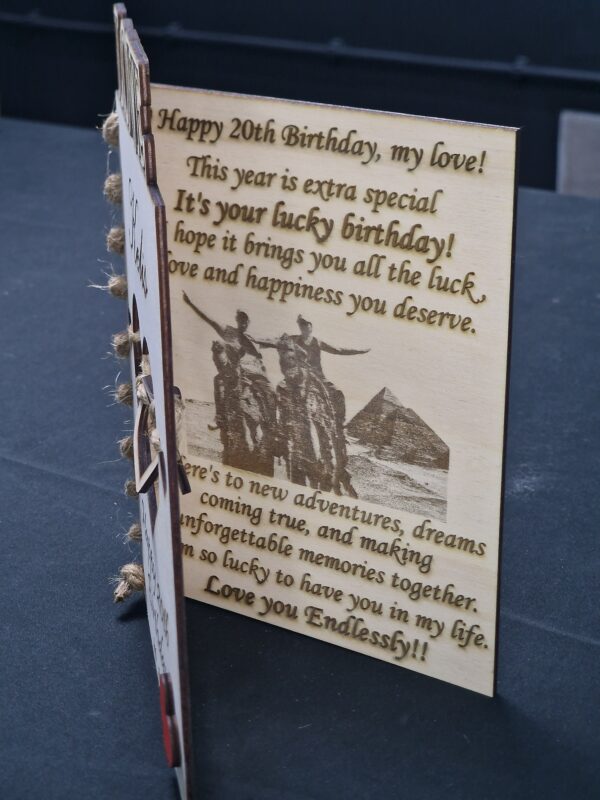 Happy 20th Birthday, my love!
This year is extra special
It's your lucky birthday!
hope it brings you all the luck,
love and happiness you deserve.
Here's to new adventures, dreams
coming true, and making
unforgettable memories together.
so lucky to have you in my life.
Love you Endlessly!!